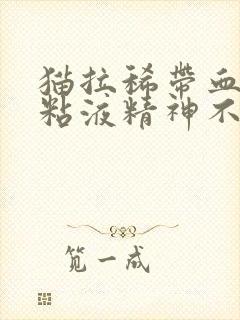 猫拉稀带血
粘液精神不
笕一成